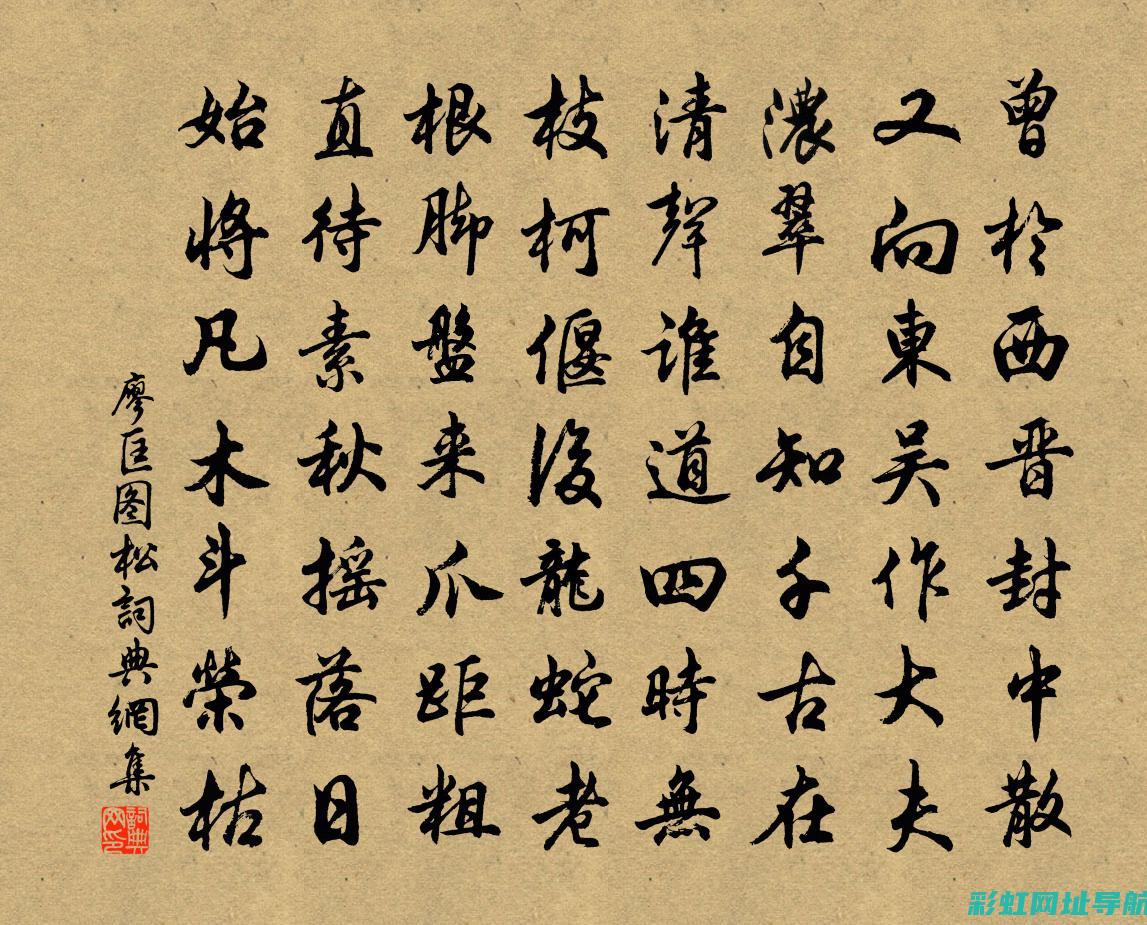 曾於西晋封中散
又向東吴作大夫
濃翠自知千古在
清聲谁道四時無
枝柯偃後龍蛇老
根脚盤来爪距粗
直待素秋摇落日
始將凡木斗榮枯
廖匡图松詞典網集
詞典网印
彩虹网址导航